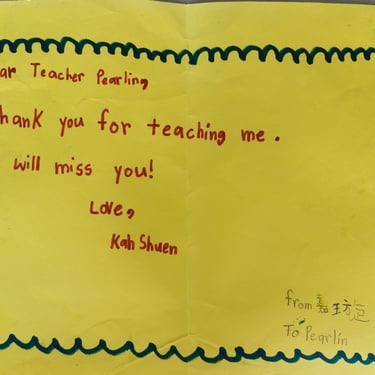 ar Teacher Pearling,
hank you for teaching me.
will miss you!
Love,
Kah Shuen
from 嘉
To Pearlin